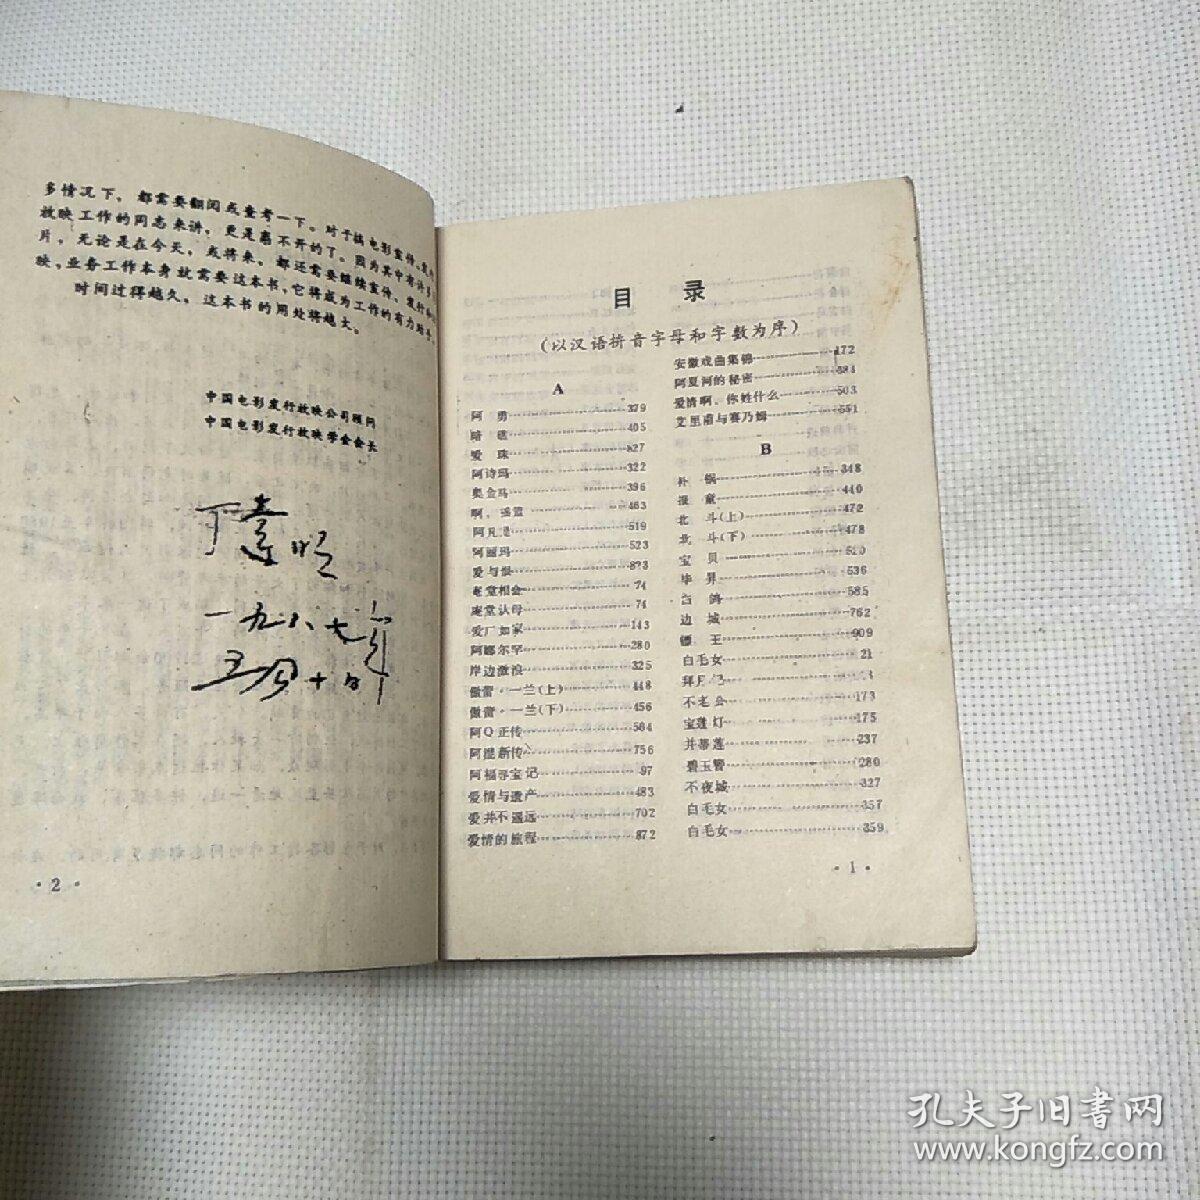 多情况下，都需要翻阅或查考一下。对于搞电影宣传、发行
放映工作的同志来讲，更是离不开的了。因为其中有许多
片，无论是在今天，或将来，都还需要继续宣传、发行和
映，业务工作本身就需要这本书，它将成为工作的有力助手。
时间过得越久，这本书的用处将越大。
中国电影发行放映公司顾问
中国电影发行放映学会会长
一九八七年
·2·
目 录
（以汉语拼音字母和字数为序）
A
阿 勇 379
暗 礁 405
爱 珠 827
阿诗玛 322
奥金马 396
啊，摇篮 463
阿凡提 519
阿丽玛 523
爱与恨 873
庵堂相会 74
庵堂认母 74
爱厂如家 143
阿娜尔罕 280
岸边激浪 325
傲蕾·一兰（上） 448
傲蕾·一兰（下） 456
阿Q正传 584
阿混新传 756
阿福寻宝记 97
爱情与遗产 483
爱并不遥远 702
爱情的旅程 872
安徽戏曲集锦 172
阿夏河的秘密 384
爱情啊，你姓什么 503
艾里甫与赛乃姆 551
B
补 锅 348
报 童 440
北 斗（上） 472
北 斗（下） 478
宝 贝 510
毕 昇 536
白 鸽 585
边 城 762
镖 王 909
白毛女 21
拜月记
不老松 173
宝莲灯 175
并蒂莲 237
碧玉簪 280
不夜城 327
白毛女 357
白毛女 359
·1·
孔夫子旧书网
www.kongfz.com